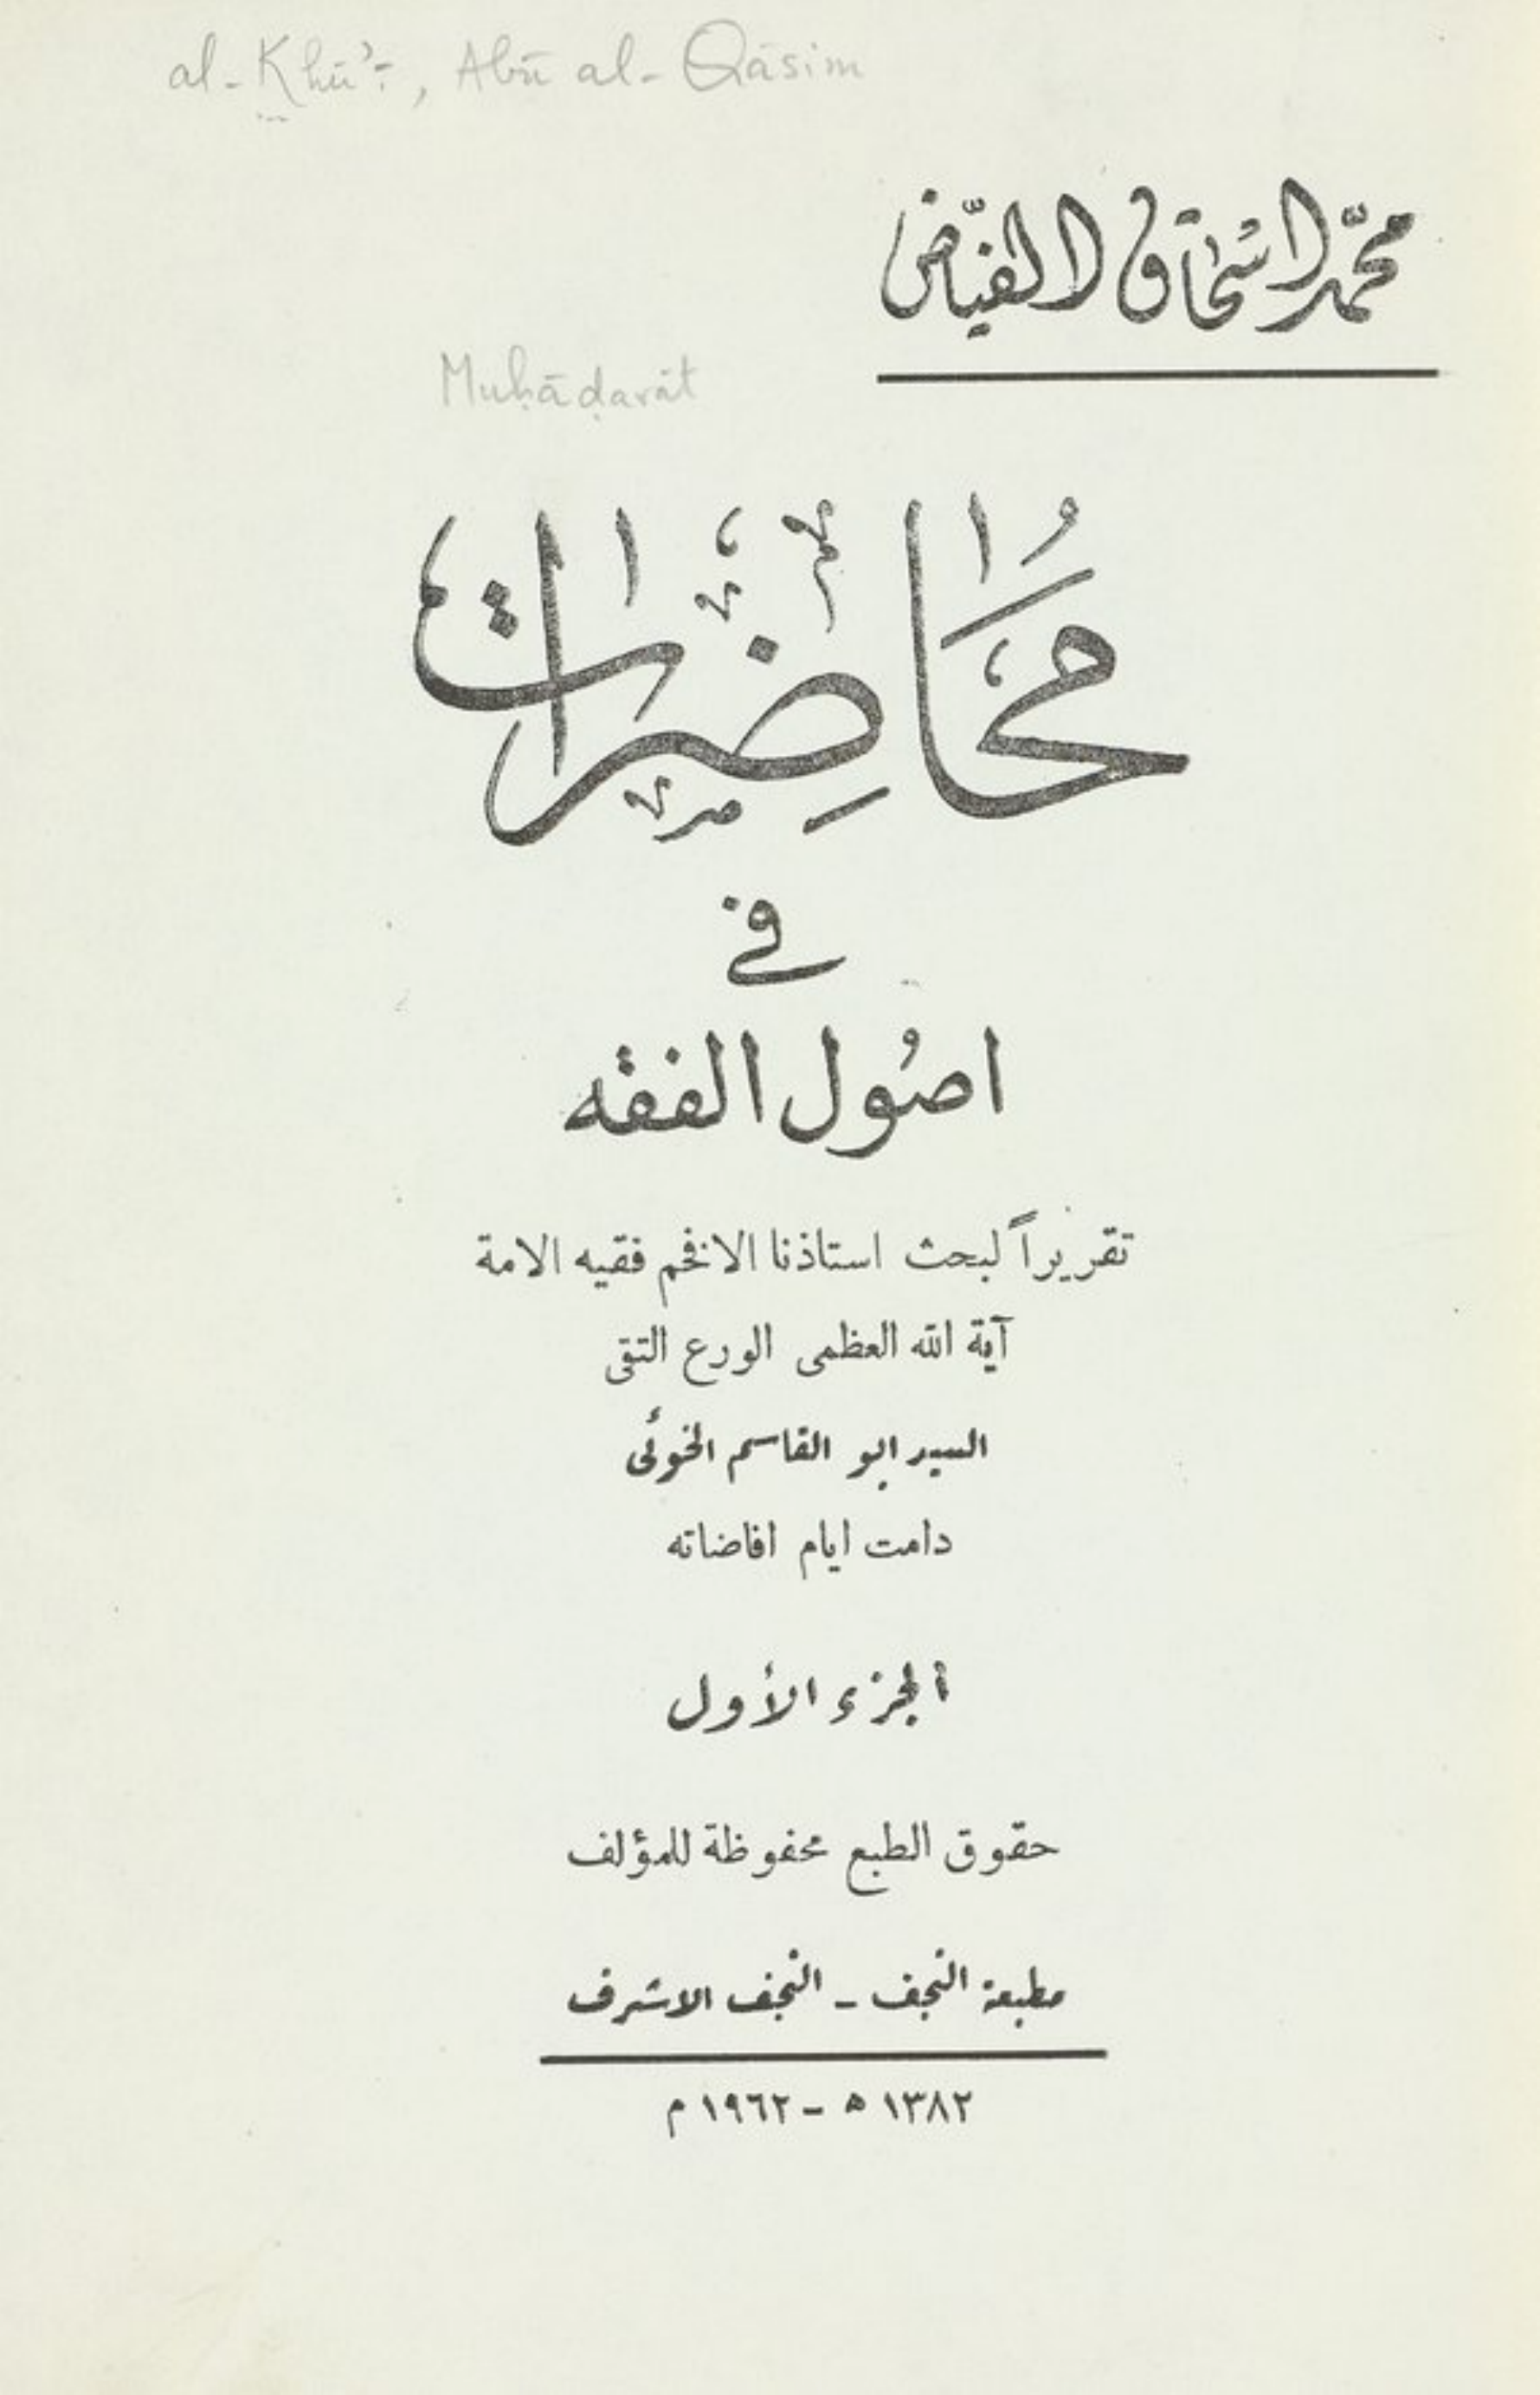 al-Khū'ī, Abū al-Qāsim
محمّد اسحاق الفيّاض
Muḥāḍarāt
مُحَاضِرات
في
اصُول الفقه
تقريراً لبحث استاذنا الافخم فقيه الامة
آية الله العظمى الورع التقى
السيد ابو القاسم الخوئى
دامت ايام افاضاته
الجزء الأول
حقوق الطبع محفوظة للمؤلف
مطبعة النجف ـ النجف الاشرف
١٣٨٢ ه ـ ١٩٦٢ م